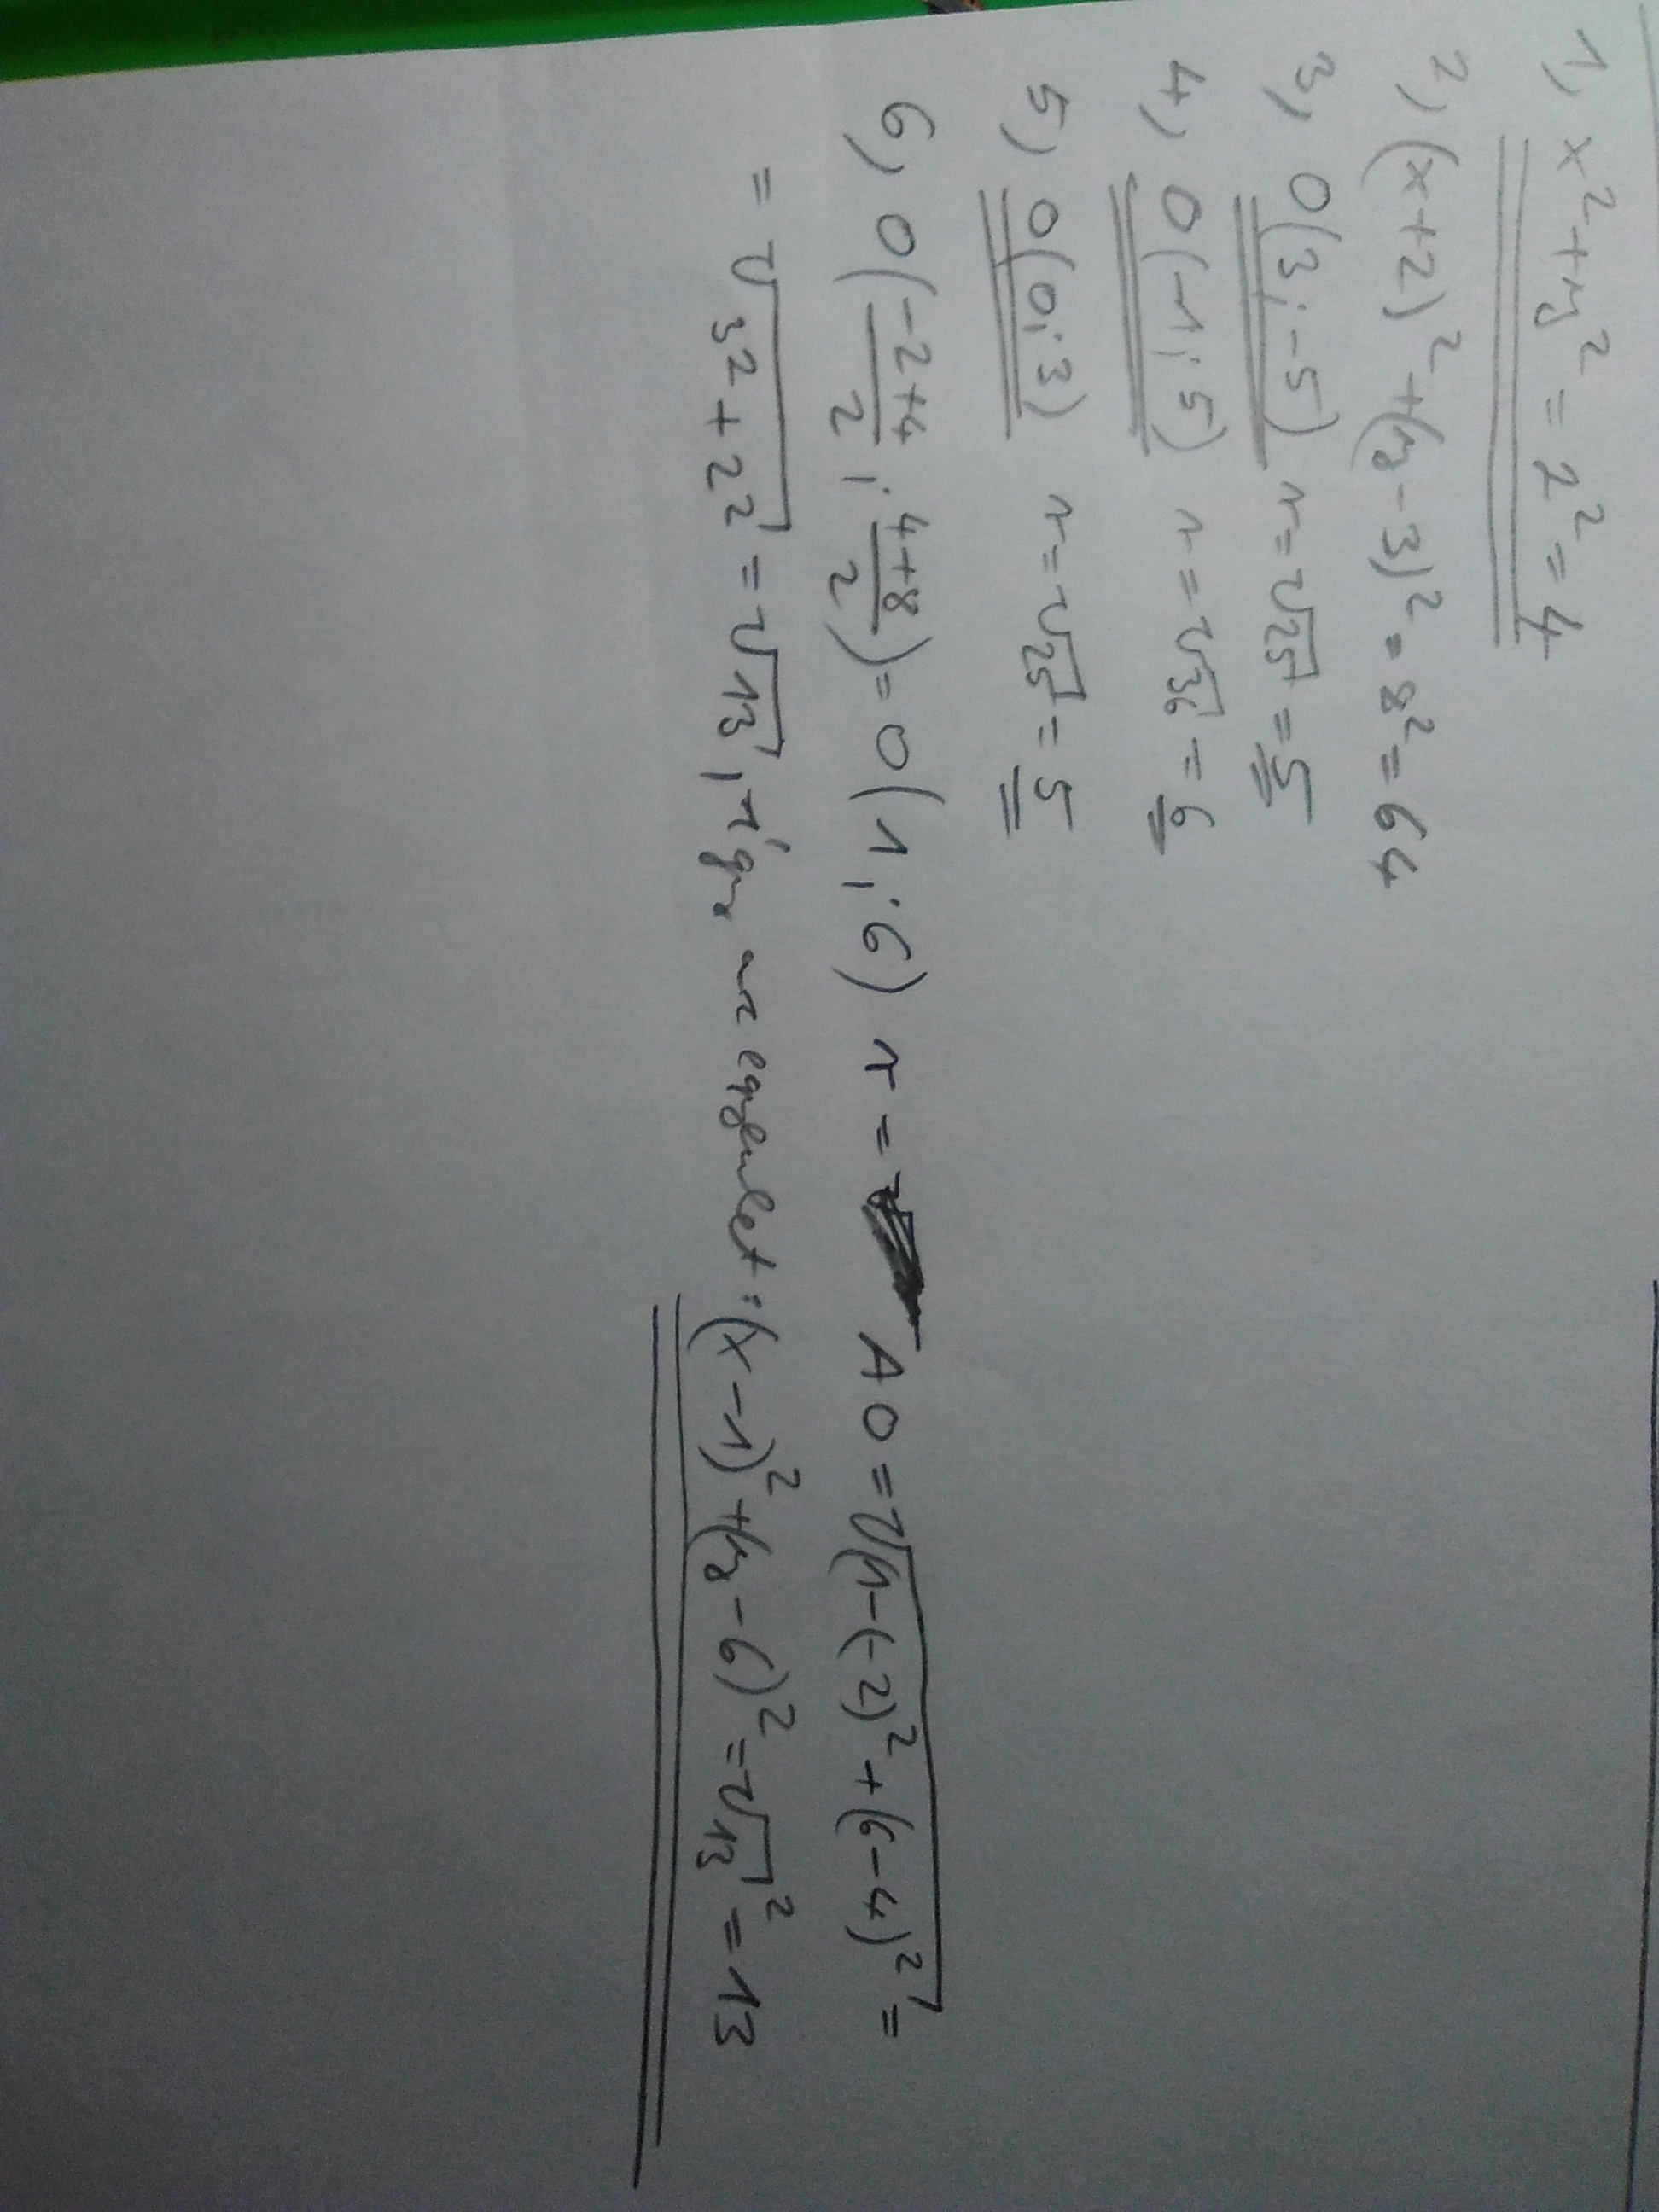 1, x²+y² = 2² = 4
2, (x+2)²+(y-3)² = 8² = 64
3, O(3;-5) r=√25=5
4, O(-1;5) r=√36=6
5, O(0;3) r=√25=5
6, O(\frac{-2+4}{2}; \frac{4+8}{2})=O(1;6) r= AO=√(1-(-2)²+(6-4)²=
=√3²+2²=√13, így az egyenlet:(x-1)²+(y-6)²=√13²=13